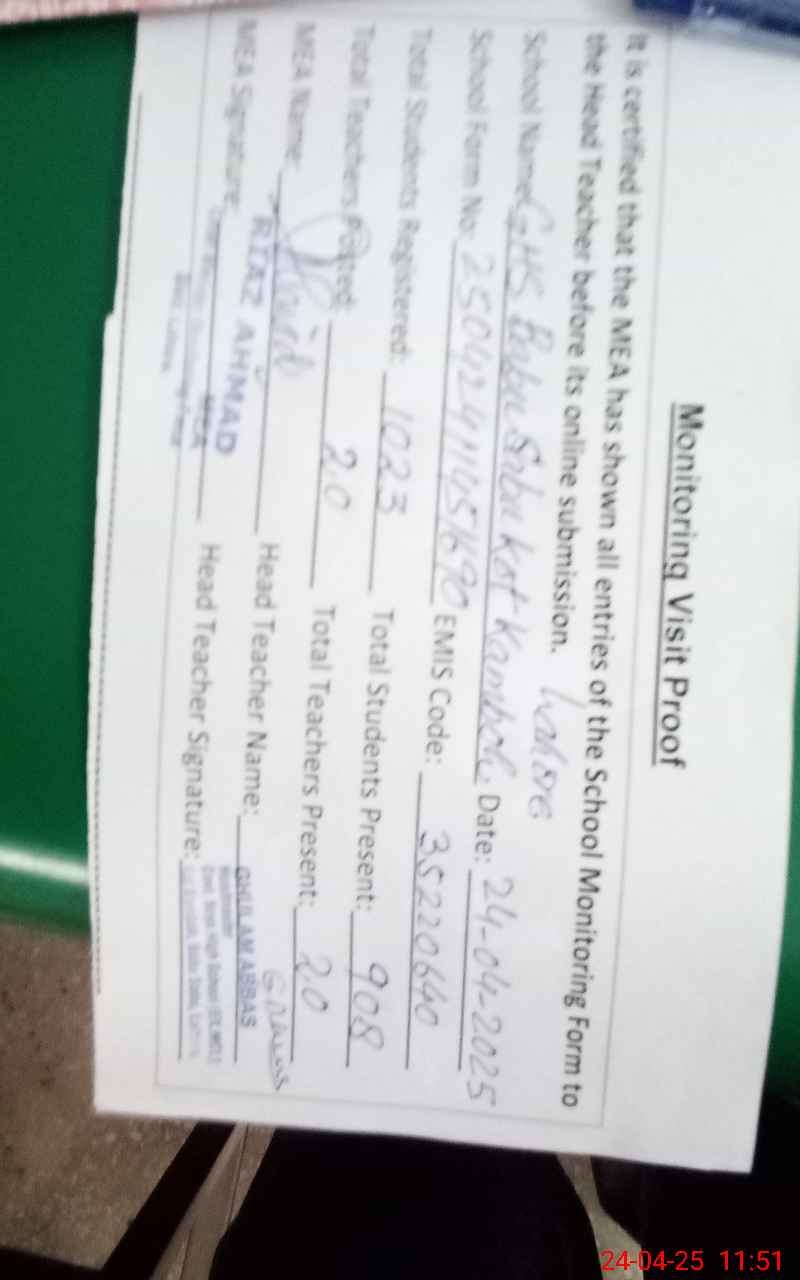 Monitoring Visit Proof
It is certified that the MEA has shown all entries of the School Monitoring Form to
the Head Teacher before its online submission.
School Name: GHS Babu Sabu Kot Kamboh Lahore Date: 24-04-2025
School Form No: EMIS Code: 35220640
Total Students Registered: 1023 Total Students Present: 908
Total Teachers Posted: 20 Total Teachers Present: 20
MEA Name: RIAZ AHMAD Head Teacher Name: GHULAM ABBAS
MEA Signature: MEA Head Teacher Signature:
24-04-25 11:51